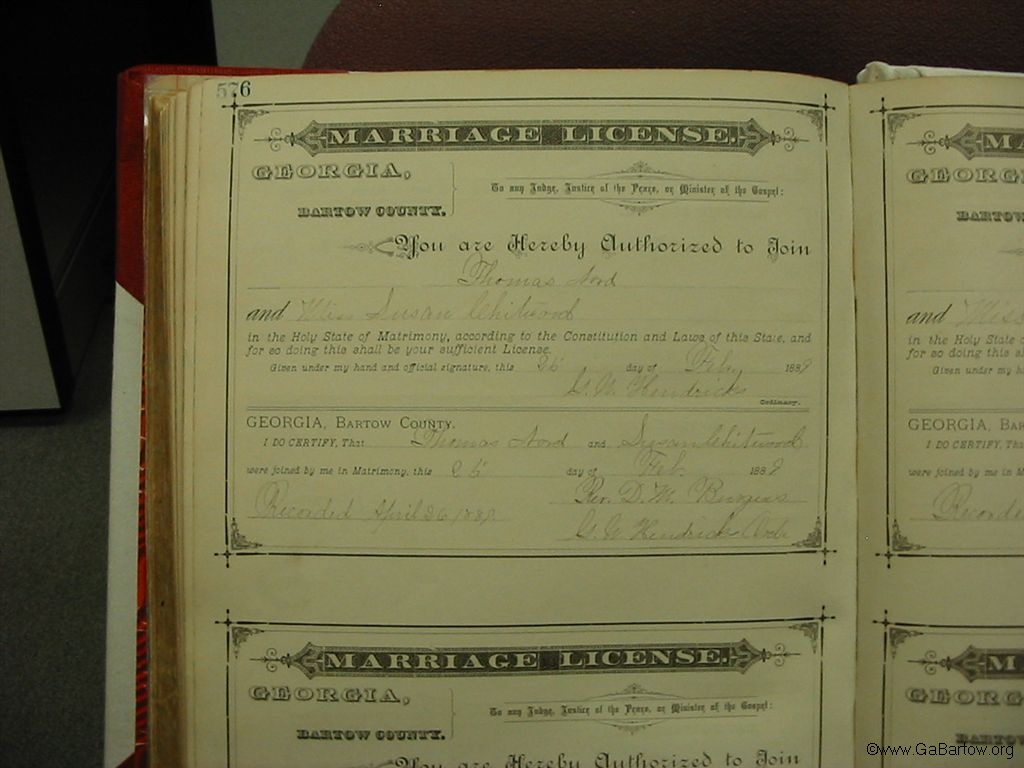 576
MARRIAGE LICENSE.
GEORGIA,
BARTOW COUNTY.
To any Judge, Justice of the Peace, or Minister of the Gospel:
You are Hereby Authorized to Join
Thomas Nord
and Miss Susan Chitwood
in the Holy State of Matrimony, according to the Constitution and Laws of this State, and
for so doing this shall be your sufficient License.
Given under my hand and official signature, this 26 day of Feby 1889
G. W. Hendricks
Ordinary.
GEORGIA, BARTOW COUNTY.
I DO CERTIFY, That Thomas Nord and Susan Chitwood
were joined by me in Matrimony, this 26 day of Feb. 1889
Rev. D. W. Burgess
Recorded April 26 1889
G. W. Hendricks Ord
MARRIAGE LICENSE.
GEORGIA,
BARTOW COUNTY.
To any Judge, Justice of the Peace, or Minister of the Gospel:
You are Hereby Authorized to Join
MA
GEORGI
BARTOW
and Miss
in the Holy State
for so doing this s
Given under my h
GEORGIA, BAR
I DO CERTIFY, Th
were joined by me in M
Recorde
M
GEORG
BARTOW
©www.GaBartow.org